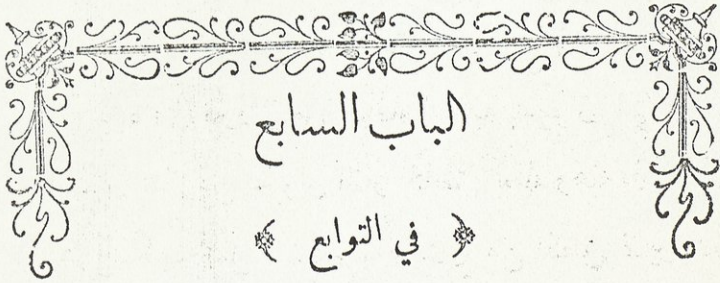 الباب السابع
﴿ في التوابع ﴾